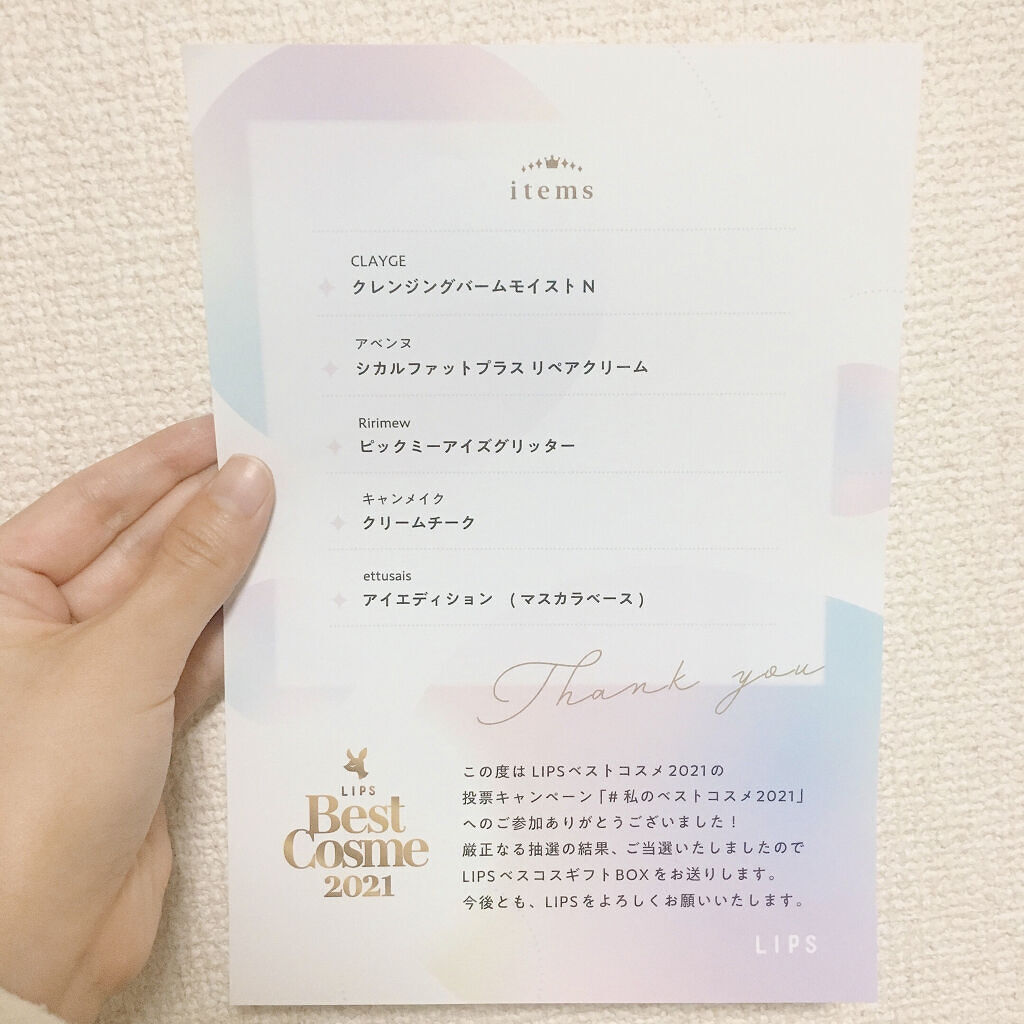 items
CLAYGE
クレンジングバームモイスト N
アベンヌ
シカルファットプラス リペアクリーム
Ririmew
ピックミーアイズグリッター
キャンメイク
クリームチーク
ettusais
アイエディション （マスカラベース）
Thank you
LIPS
Best
Cosme
2021
この度は LIPSベストコスメ2021の
投票キャンペーン「#私のベストコスメ2021」
へのご参加ありがとうございました！
厳正なる抽選の結果、ご当選いたしましたので
LIPSベスコスギフトBOXをお送りします。
今後とも、LIPSをよろしくお願いいたします。
LIPS